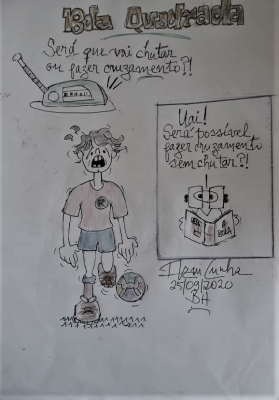 Bola Quadrada
Será que vai chutar
ou fazer cruzamento?!
Uai!
Será possível
fazer cruzamento
sem chutar?!
A
BOLA
25/09/2020
BH